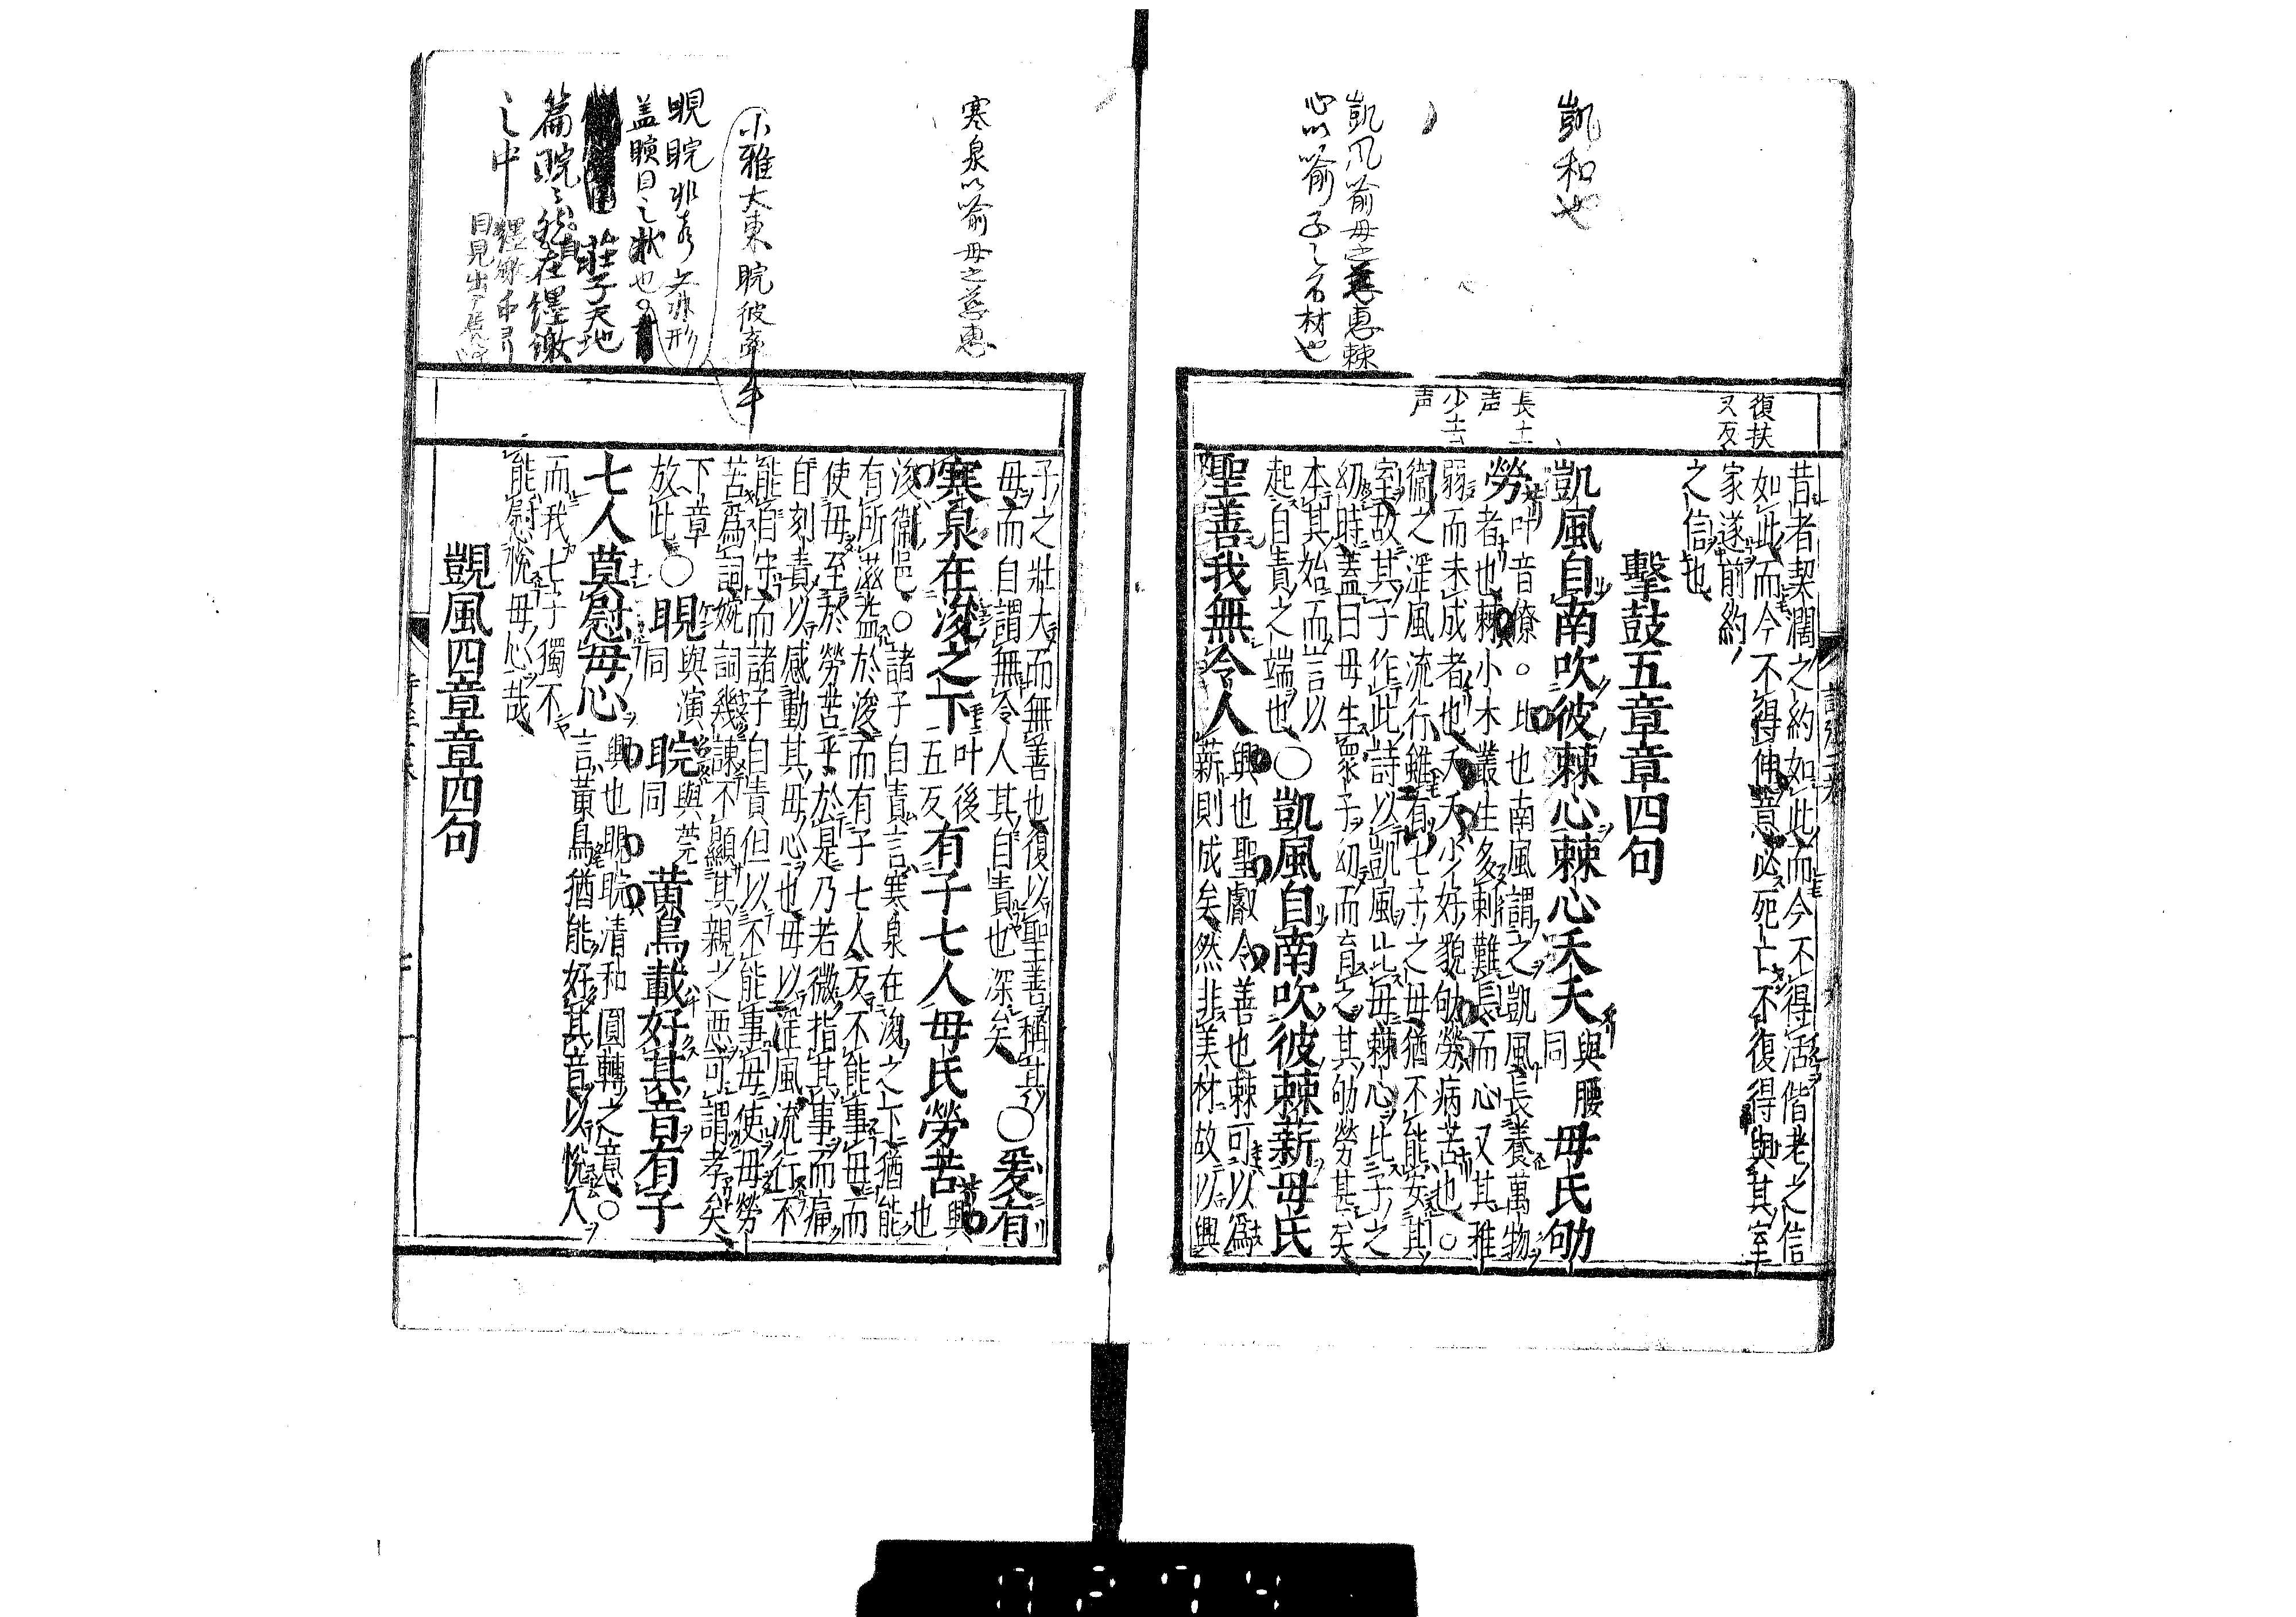 凱和也
凱風喩母之慈惠棘
心以喩子之不材也
復扶
又反
長上
声
少去
声
昔者契濶之約如此而今不得活偕老之信
如此而今不得伸意必死亡不復得與其室
家遂前約
之信也
擊鼓五章章四句
凱風自南吹彼棘心棘心夭夭與腰同母氏劬
勞叶音僚○比也南風謂之凱風長養萬物
者也棘小木叢生多刺難長而心又其稚
弱而未成者也夭夭少好貌劬勞病苦也○
衞之淫風流行雖有七子之母猶不能安其
室故其子作此詩以凱風比母棘心比子之
幼時蓋曰母生衆子幼而育之其劬勞甚矣
本其始而言以
起自責之端也○凱風自南吹彼棘薪母氏
聖善我無令人興也聖叡令善也棘可以爲
薪則成矣然非美材故以興
寒泉以喩母之慈惠
小雅大東睆彼牽牛
睍睆
盖瞋目之狀也
莊子天地
篇睆睆然在纆繳
之中
子之壯大而無善也復以聖善稱其
母而自謂無令人其自責也深矣○爰有
寒泉在浚之下叶後五反有子七人母氏勞苦興也
浚衞邑○諸子自責言寒泉在浚之下猶能
有所滋益於浚而有子七人反不能事母而
使母至於勞苦乎於是乃若微指其事而痛
自刻責以感動其母心也母以淫風流行不
能自守而諸子自責但以不能事母使母勞
苦爲詞婉詞幾諫不顯其親之惡可謂孝矣
下章
放此○睍與演同睆與莞同黃鳥載好其音有子
七人莫慰母心興也睍睆清和圓轉之意○
言黃鳥猶能好其音以悅人
而我七子獨不
能慰悅母心哉
凱風四章章四句